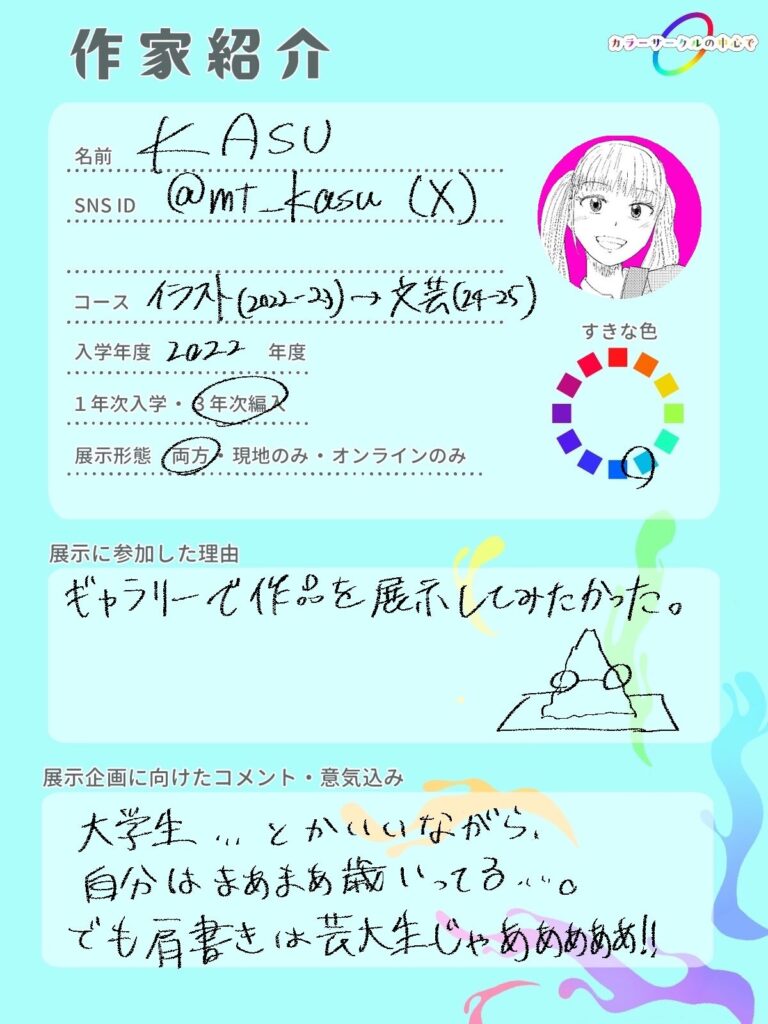 作家紹介
カラーサークルの中心で
名前 KASU
SNS ID @mt_kasu (X)
コース イラスト(2022-23)→文芸(24-25)
入学年度 2022 年度
すきな色
1年次入学・3年次編入
展示形態 両方・現地のみ・オンラインのみ
展示に参加した理由
ギャラリーで作品を展示してみたかった。
展示企画に向けたコメント・意気込み
大学生…とかいいながら、
自分はまあまあ歳いってる…。
でも肩書きは芸大生じゃあああああ!!